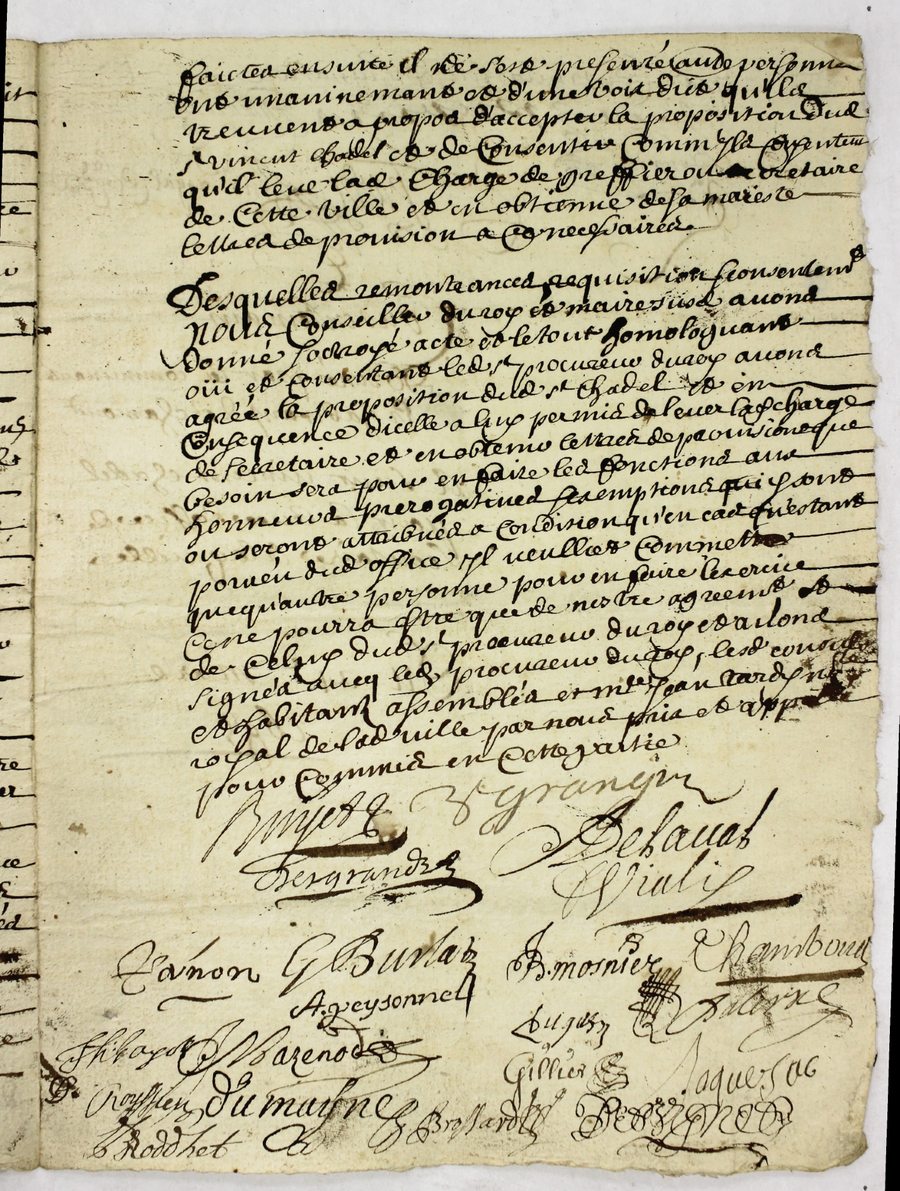 faictes ensuite il ne sest presenté autre personne
ont unaninemant et d'une voix dict qu'ils
treuvent a propos d'accepter la proposition dud
sr vincent Chadel et de Consentir Comm'ils Consentent
qu'il leve lad Charge de greffier ou secretaire
de Cette ville et en obtienne de sa mareste
lettres de provision a Ce necessaires
Desquelles remontrances requisition & consentemt
nous Conseiller du roy et maire susd avons
donné & octroyé acte et le tout homologuant
oüi et Consentant led sr procureur du roy avons
agréé la proposition dud sr Chadel et en
Consequence dicelle a luy permis de lever lad Charge
de Secretaire et en obtenir lettres de provision que
besoin sera pour en faire les fonctions aux
honneurs prerogatives & exemptions qui y sont
ou seront attribués a Condition qu'en cas qu'estant
pourveu dud office il veuillies Commettre
quequ'autre personne pour en faire lexercice
Ce ne pourra estre que de nostre agreemt et
de Celuy dud sr procureur du roy et avons
signés avecq led procureur du roy, lesd consuls
et habitantz assemblés et me Jean tardy no
royal de lad ville par nous pris et appellé
pour Commis en Cette partie
Grangier
Delavat
Desgrandz
Vialis
Ranon G Burlaz B. mosnier Chambaud
A. peysonnel
Marenode
Gillier Raquesac
dumayne Brossard
Roddhet